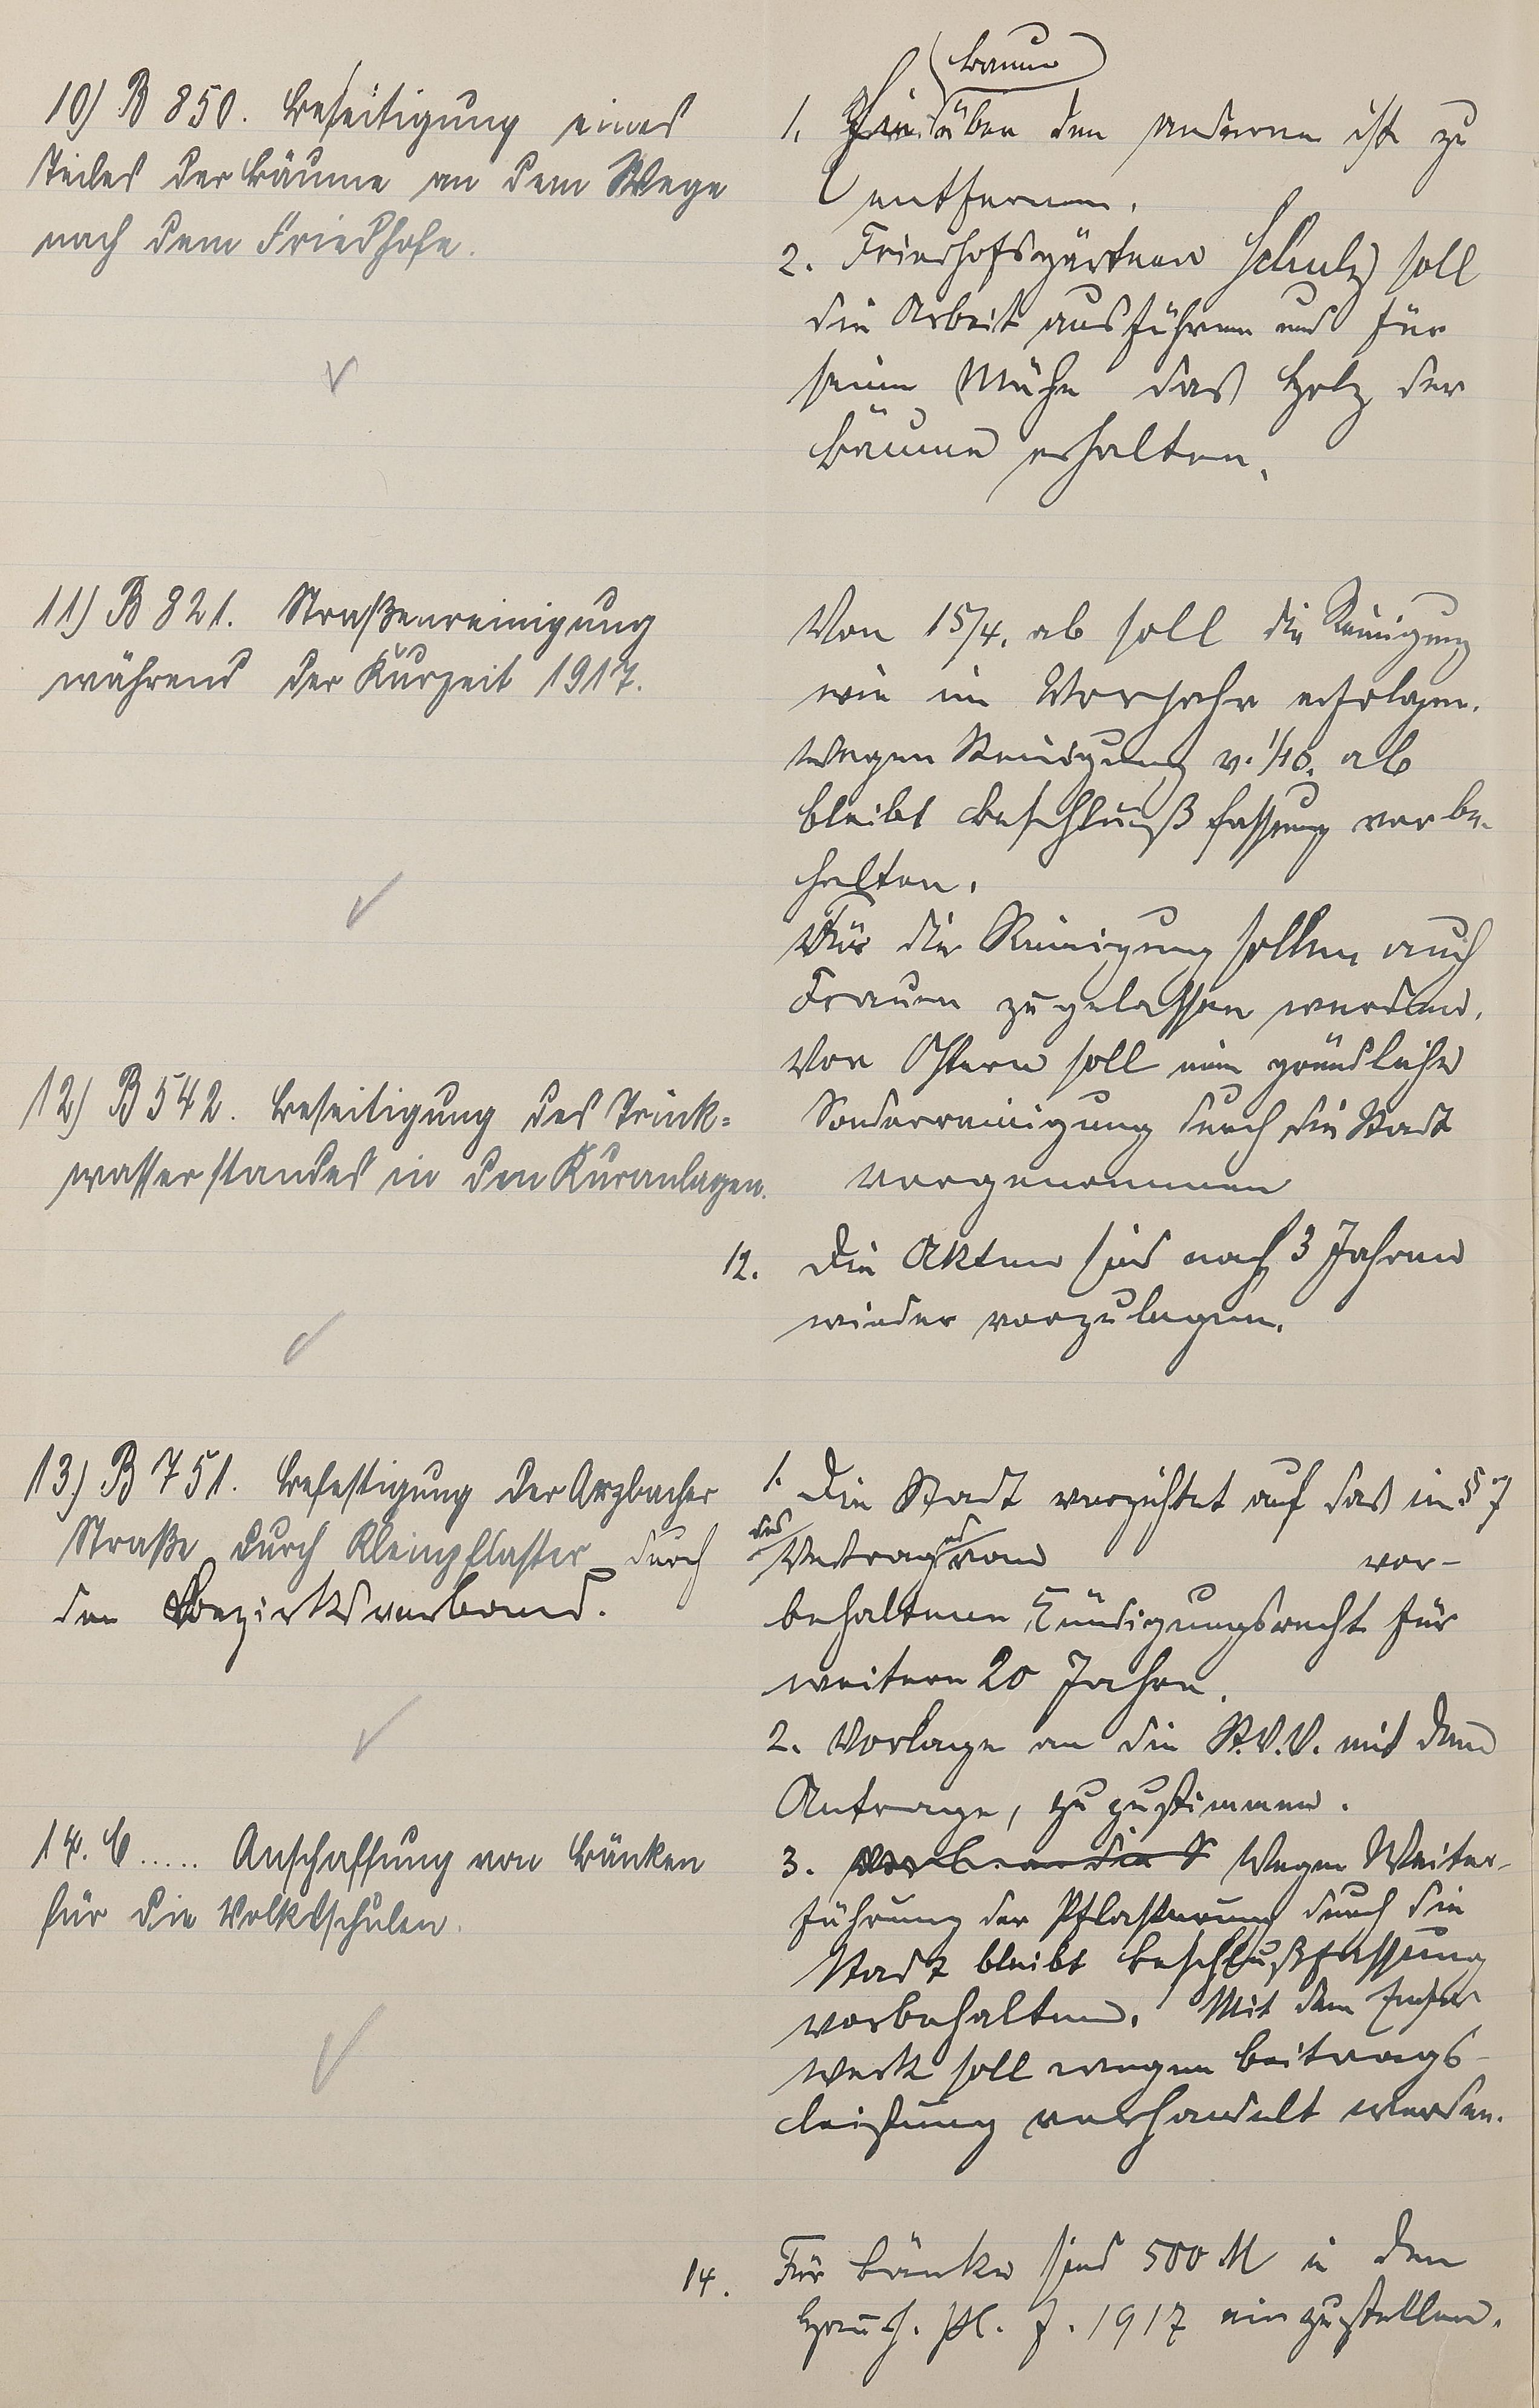 10) B 850. Beseitigung eines
Teiles der Bäume an dem Wege
nach dem Friedhofe.
Baum
1. über den anderen ist zu
entfernen.
2. Friedhofsgärtner Schulz soll
die Arbeit ausführen und für
seine Mühe das Holz der
Bäume erhalten.
11) B 821. Straßenreinigung
während der Kurzeit 1917.
Von 15/4. ab soll die Reinigung
wie im Vorjahr erfolgen.
Wegen Reinigung v. 1/10. ab
bleibt Beschlußfassung vorbe-
halten.
Für die Reinigung sollen auch
Frauen zugelassen werden.
Vor Ostern soll eine gründliche
Sonderreinigung durch die Stadt
vorgenommen
12) B 542. Beseitigung des Trink-
wasserstandes in den Kuranlagen.
12. Die Akten sind nach 3 Jahren
wieder vorzulegen.
13) B 751. Befestigung der Arzbacher
Straße durch Kleinpflaster durch
den Bezirksverband.
1. Die Stadt verzichtet auf das in § 7
des Vertrages vom vor-
behaltene Kündigungsrecht für
weitere 20 Jahre.
2. Vorlage an die St.V.V. mit dem
Antrage, zuzustimmen.
3. Wegen Weiter-
führung der Pflasterung durch die
Stadt bleibt Beschlußfassung
vorbehalten. Mit dem
werk soll wegen Beitrags-
leistung verhandelt werden.
14. C..... Anschaffung von Bänken
für die Volksschulen.
14. Für Bänke sind 500 M in den
Haush. Pl. f. 1917 einzustellen.